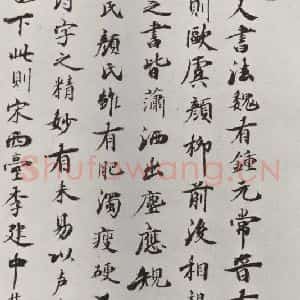 人書法魏有鍾元常晉有
則歐虞顏柳前後相
之書皆蕭洒出塵應規
氏顏氏雖有肥濁瘦硬
字之精妙有未易以
下此則宋西臺李建中
Shufawang.CN